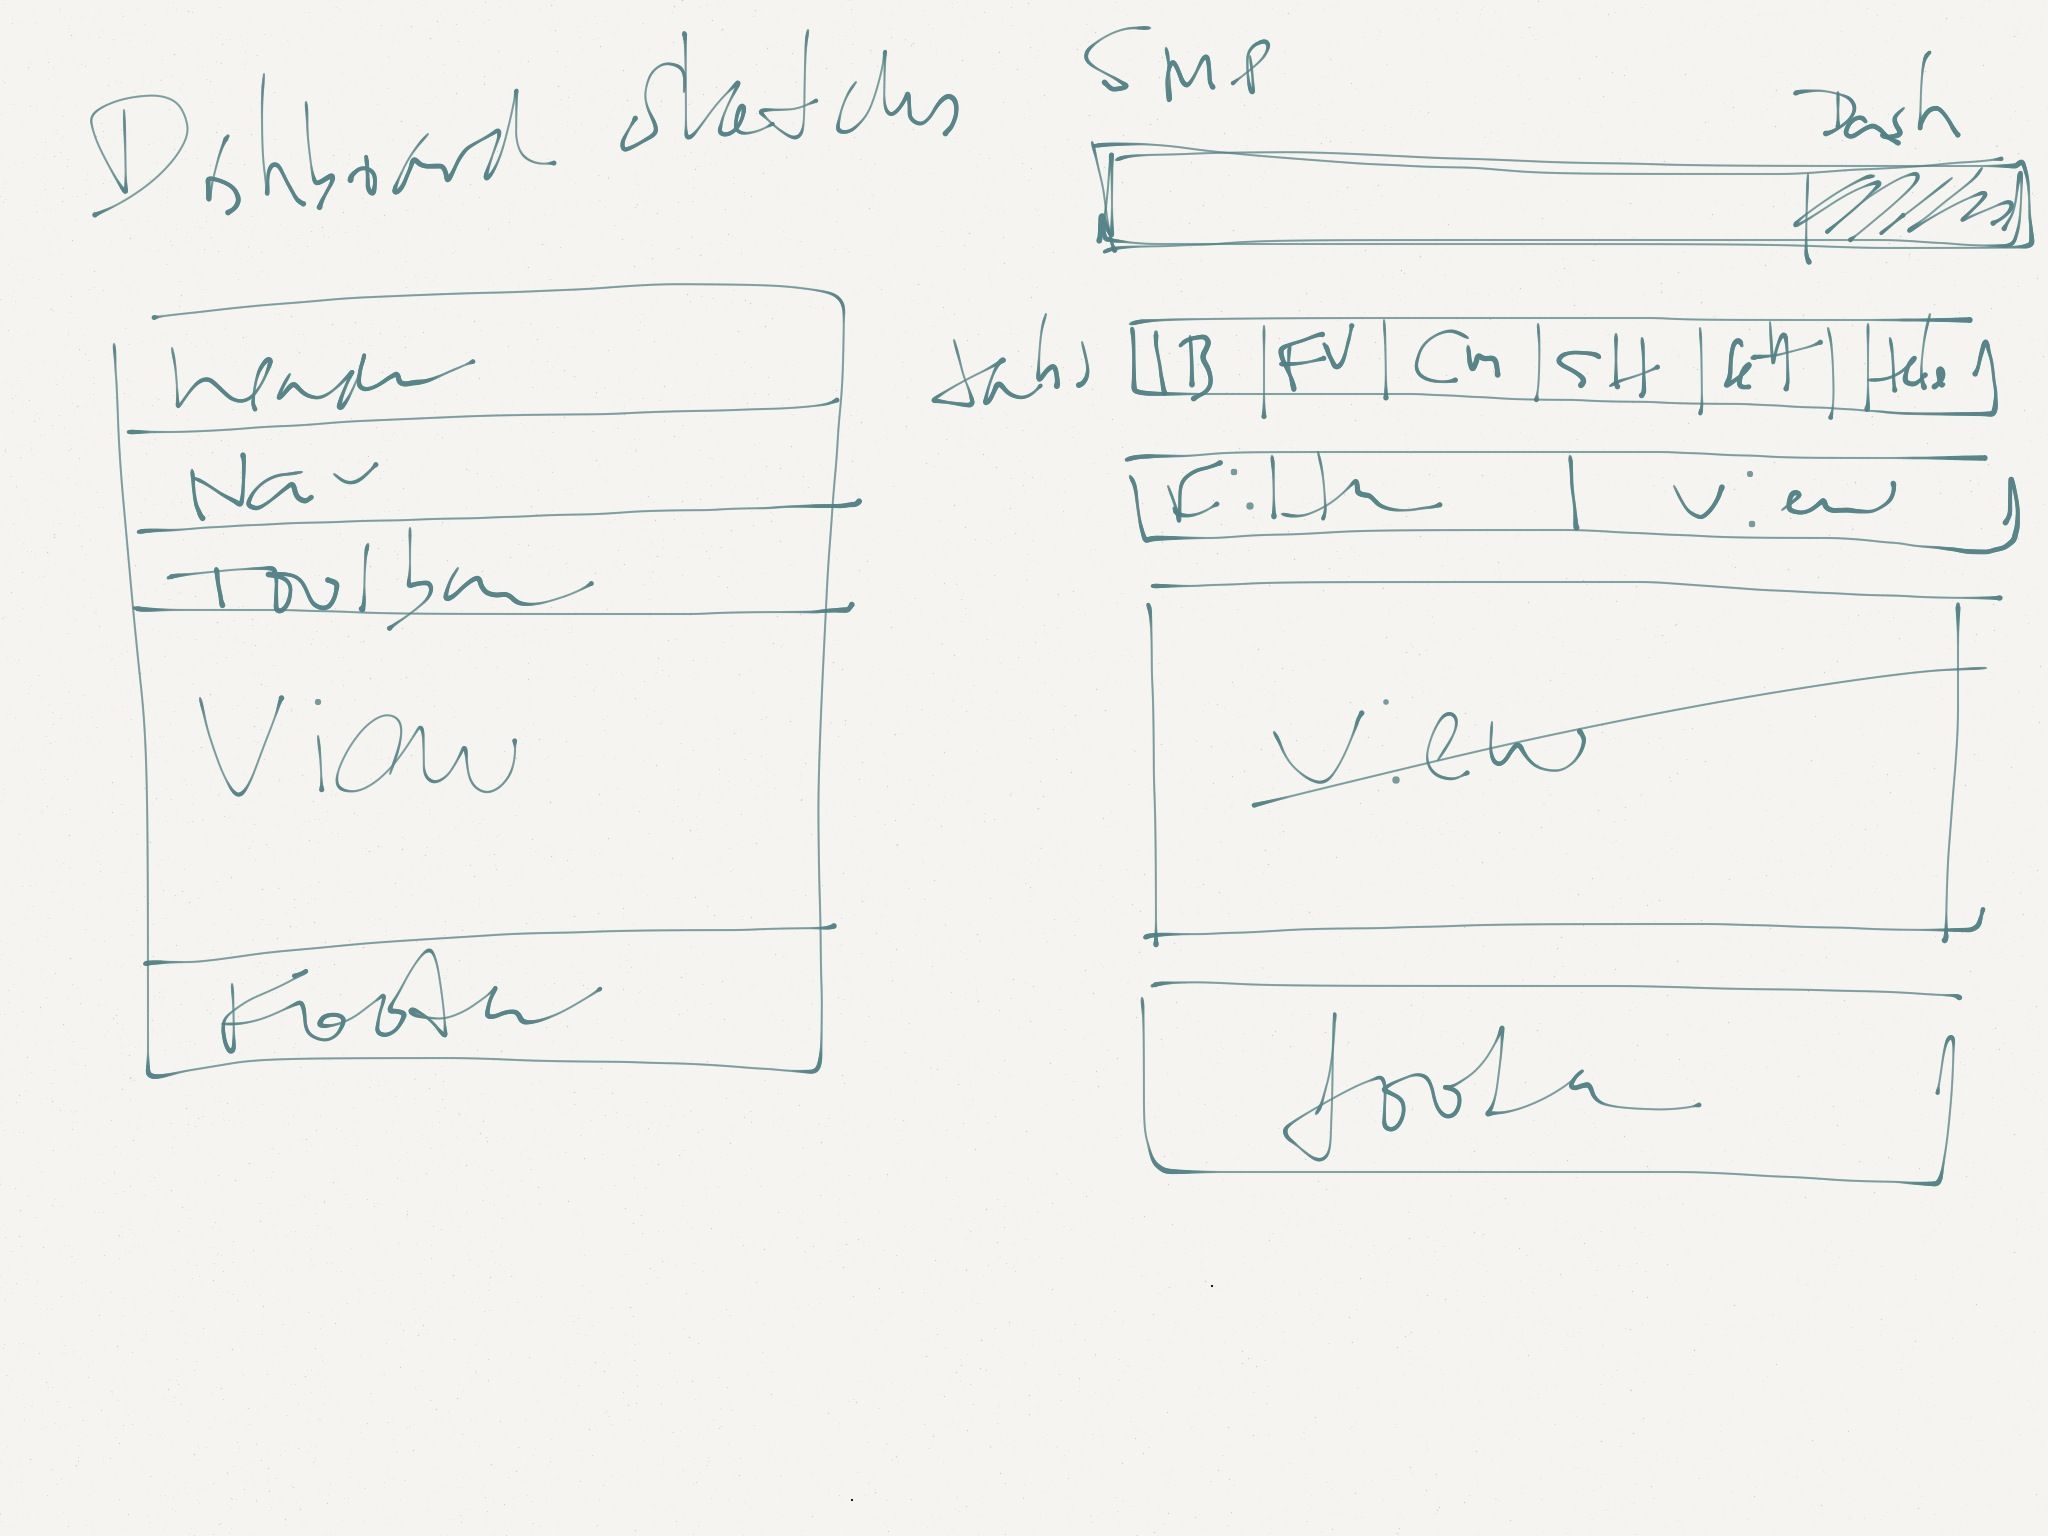 Dashboard Sketches
SMP
Dash
Nav
Toolbar
View
Footer
Tabs
B FV Cm SH
Filter View
View
footer